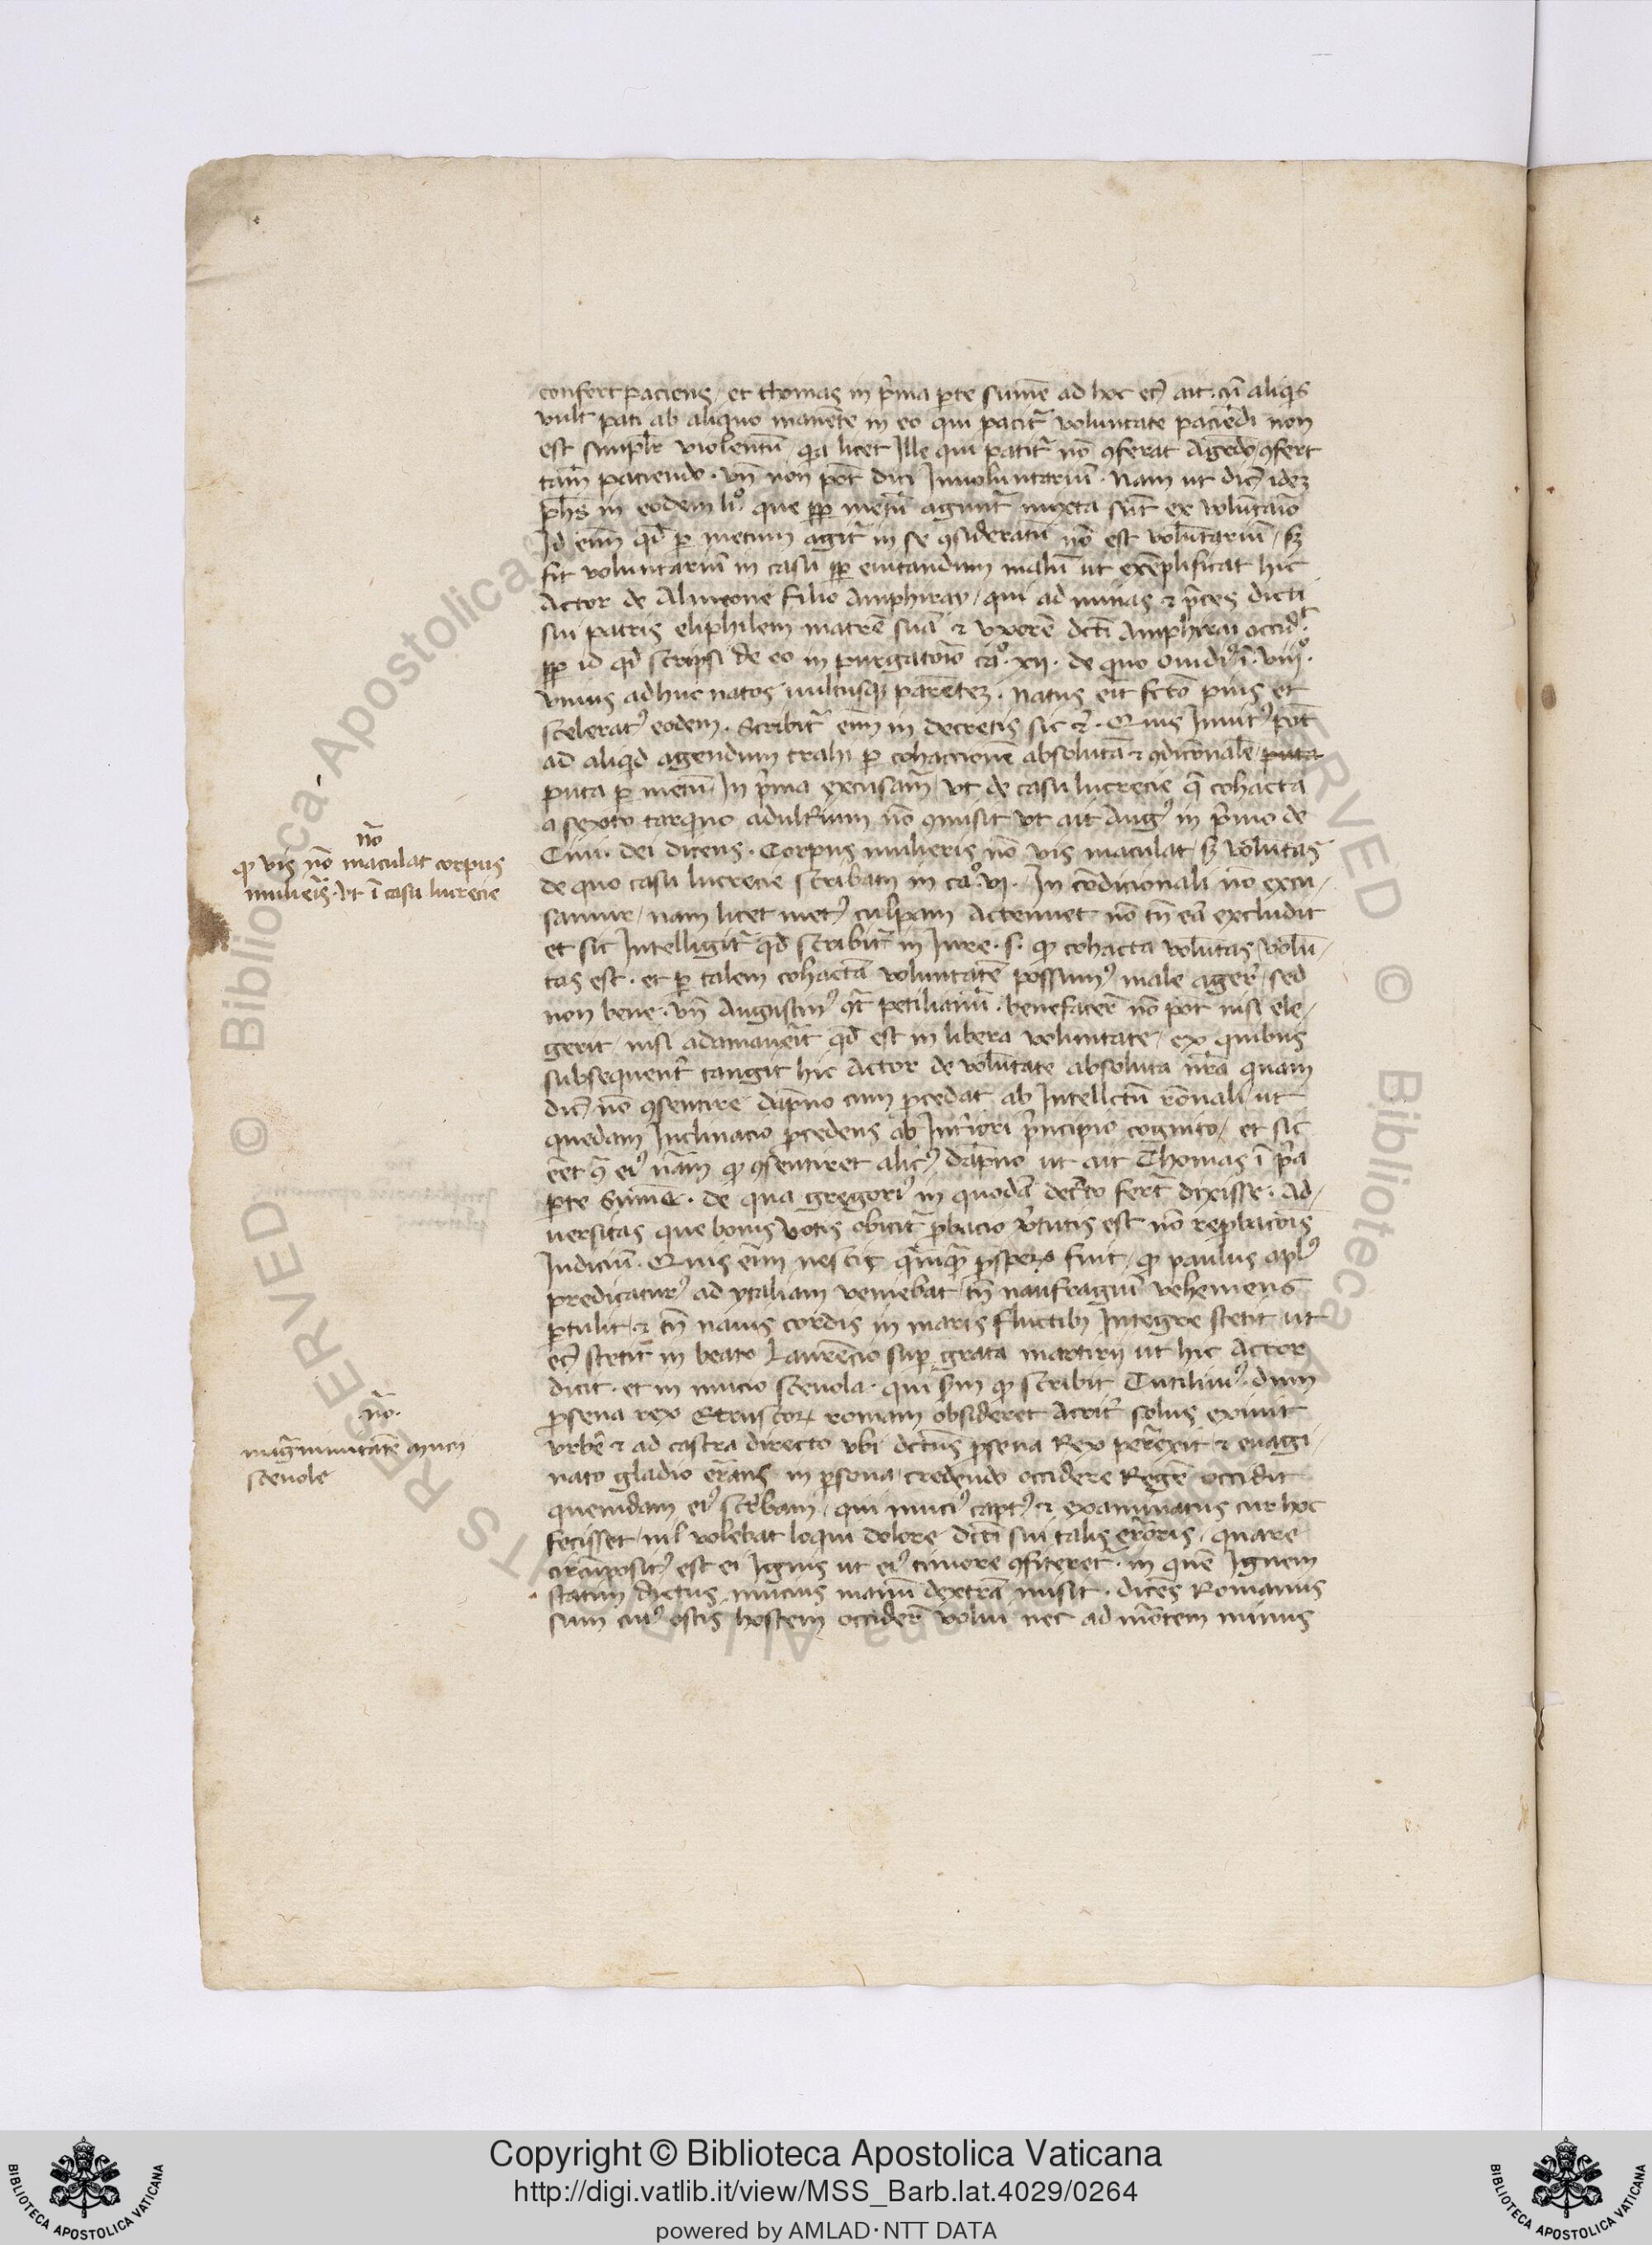 confert paciens / et thomas in p̃ma p̱te sum̃e ad hoc etꝰ ait . cũ aliq̃s
vult pati ab aliquo manẽte in eo qui pacit᷑ voluntate paciẽdi non
est simpl̃r violentũ / q̃a licet Ille qui patit᷑ nõ ꝯferat Agẽdo ꝯfert
tam̃ paciendo . vñ non põt dici Involuntariũ . Nam ut dic̃ idez
ph̃s in eodem liº que ꝓpꝑ metũ agunt᷑ mixta sũt ex volũtaio
Id em̃ qđ ꝑ metum agit᷑ in se ꝯsideratũ nõ est volũtariũ / sꝫ
fit voluntariũ in casu ꝓpꝑ euitandum malũ ut exẽplificat hic
Actor de Almeone filio Amphirav / qui ad minas ⁊ p̃ces dicti
sui patris eliphilem matrẽ suã ⁊ vxorẽ dc̃ti Amphirai occid᷑
ꝓpꝑ id qđ scripsi de eo in purgatoio caº . xij . de quo ouidiꝰ ĩ . viijº.
vnius adhuc natos ultusqꝫ parẽtez . natus erit fc̃to pius et
sceleratꝰ eodem . Scribit᷑ em̃ in decretis sic ⁊c̃ . Quis Inuitꝰ põt
ad aliqđ agendum trahi ꝑ cohaccionẽ absolutã ⁊ ꝯdic̃onalẽ puta
puta ꝑ metũ / In p̃ma excusam̃ / vt de casu lucrecie q̃ cohacta
a sexto tarqno adult̃ium nõ ꝯmisit vt ait Augꝰ in p̃mo de
Ciui . dei dicens . Corpus mulieris nõ vis maculat sꝫ volũtas
de quo casu lucrecie scribam in caº . vj . In cõdicionali nõ excu /
samur / nam licet metꝰ culpam Attenuet nõ tñ eã excludit
et sic Intelligit᷑ qđ scribit᷑ in Iure . s . ꝙ cohacta volũtas volũ /
tas est . et ꝑ talem cohactã voluntatẽ possumꝰ male ager̃ / sed
non bene . vñ Augustinꝰ ꝯt᷑ petilianũ . benefacer̃ nõ põt nisi ele /
gerit / nisi adamauerit qđ est in libera voluntate / ex quibus
subsequent̃ tangit hic Actor de volũtate absoluta nr̃a quam
dic̃ nõ ꝯsentire dãpno cum ꝓcedat ab Intellc̃tu rõnali / ut
quedam Inclinacio ꝓcedens ab Int̃iori p̃ncipio cognito / et sic
eẽt ꝯ̃ eiꝰ nãm ꝙ ꝯsentiret alicꝰ dãpno ut ait Thomas ĩ p̃a
p̱te Sum̃e . de qua gregoriꝰ in quodã dec̃to fert᷑ dixisse . Ad /
uersitas que bonis votis obicit᷑ ꝓbacio v̇tutis est nõ reꝓbacõis
Indiciũ . Quis em̃ nescit q̃mq̃ ꝓspeꝝ fuit / ꝙ paulus apl̃ꝰ
predicaturꝰ ad ytaliam veniebat / tñ naufragiũ vehemens
ꝑtulit / ⁊ tñ nauis cordis in maris fluctibꝫ Integre stetit ut
etꝰ stetit in beato Laurẽcio suꝑ grata martirij ut hic Actor
dicit . et in mucio sceuola . qui sm̃ ꝙ scribit Tutiliuꝰ . dum
ꝓsena rex Etruscoꝝ romam obsideret Acrit̃ solus exiuit
vrbẽ ⁊ ad castra directo vbi dc̃tus ꝓsena Rex perrexit ⁊ euagi /
nato gladio errans in ꝑsona / credendo occidere Regẽ occidit
quemdam eiꝰ scribam / qui muciꝰ captꝰ ⁊ examinatus cur hoc
fecisset / nil̃ volebat loqui dolore dc̃ti sui talis erroris / quare
circũpositꝰ est ei Ignis ut eiꝰ timore ꝯfiteret᷑ . in quẽ Ignem
statim dictus mucius manũ dextrã misit . dicẽs Romanus
sum ciuꝰ ostis hostem occider̃ volui nec ad mõrtem minus
nõ
ꝙ vis nõ maculat corpus
mulieris . vt ĩ casu lucrecie
nõ.
mag̃nimitatẽ mucij
sceuole
Copyright © Biblioteca Apostolica Vaticana
http://digi.vatlib.it/view/MSS_Barb.lat.4029/0264
powered by AMLAD·NTT DATA